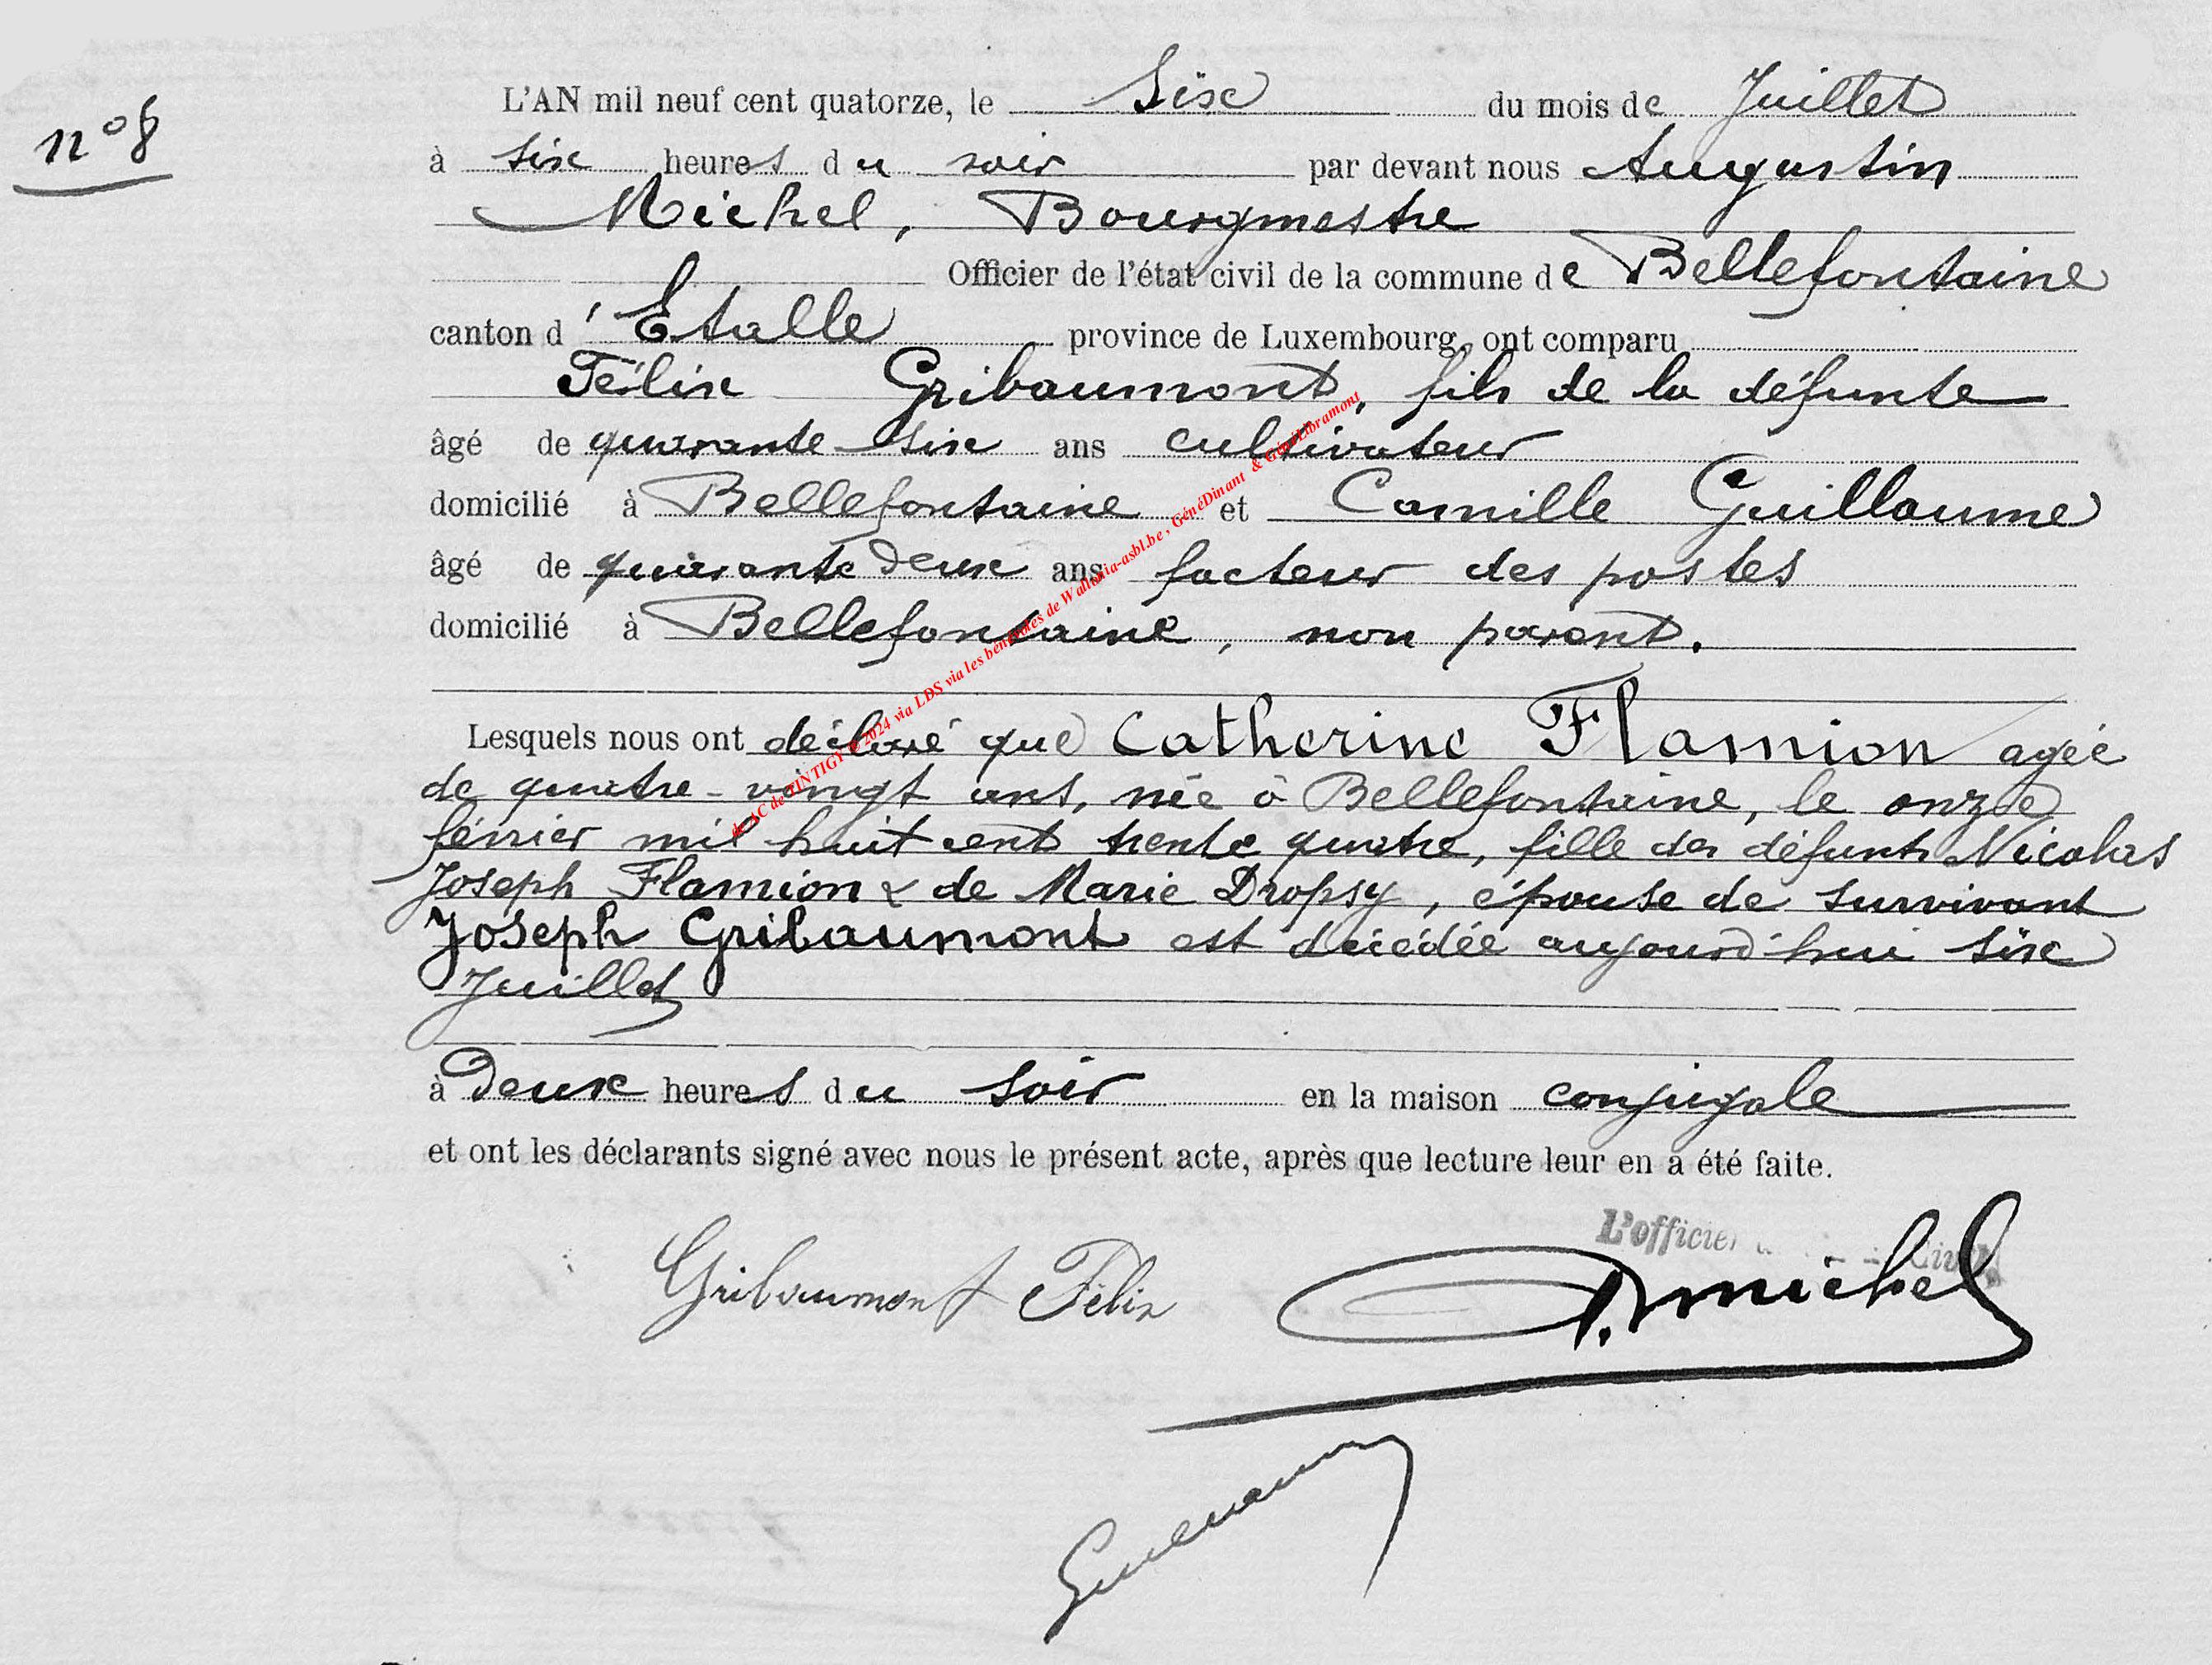 n° 8
L'AN mil neuf cent quatorze, le six du mois de Juillet
à six heures du soir par devant nous Augustin
Michel, Bourgmestre
Officier de l'état civil de la commune de Bellefontaine
canton d'Etalle province de Luxembourg, ont comparu
Félix Gribaumont, fils de la défunte
âgé de quarante-six ans cultivateur
domicilié à Bellefontaine et Camille Guillaume
âgé de quarante deux ans facteur des postes
domicilié à Bellefontaine, non parent.
Lesquels nous ont déclaré que Catherine Flamion agée
de quatre-vingt ans, née à Bellefontaine, le onze
février mil huit cent trente quatre, fille des défunts Nicolas
Joseph Flamion & de Marie Dropsy, épouse de survivant
Joseph Gribaumont est décédée aujourd'hui six
Juillet
à Deux heures du soir en la maison conjugale
et ont les déclarants signé avec nous le présent acte, après que lecture leur en a été faite.
L'officier
Gribaumont Félix
A. Michel
de AC de TINTIGY © 2024 via LDS via les bénévoles de Wallonia-asbl.be, GénéDinant & GénéLibramont